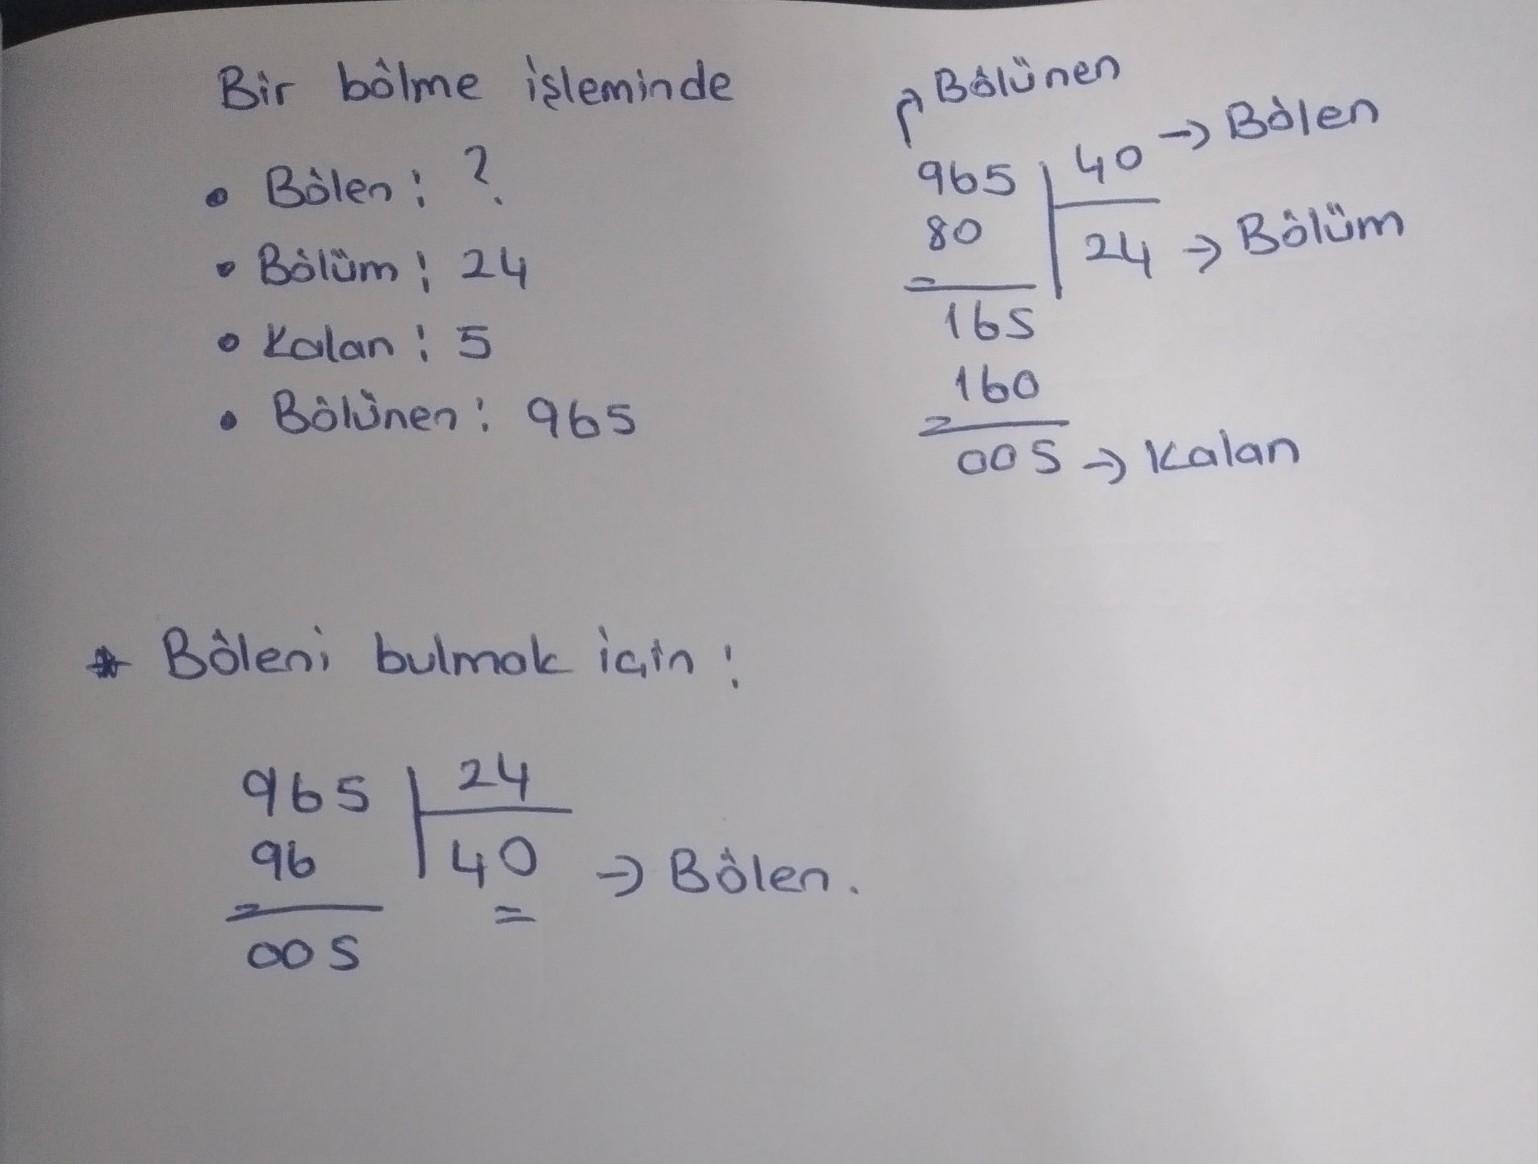 Bir bölme işleminde
• Bölen : ?
• Bölüm : 24
• Kalan : 5
• Bölünen : 965
Bölünen
965 40 → Bölen
80 24 → Bölüm
165
160
005 → Kalan
* Böleni bulmak için :
965 24
96 40 → Bölen.
005